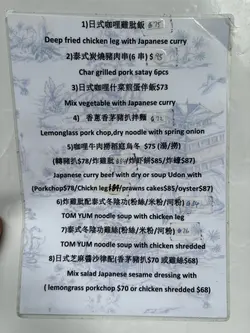 1)日式咖喱雞批飯
Deep fried chicken leg with Japanese curry
2)泰式炭燒豬肉串(6 串)
Char grilled pork satay 6pcs
3)日式咖喱什菜煎蛋伴飯$73
Mix vegetable with Japanese curry
4) 香蔥香茅豬扒拌麵
Lemonglass pork chop,dry noodle with spring onion
5)咖喱牛肉撈稻庭烏冬 $75 (湯/撈)
(轉豬扒$78/炸雞批 /炸虾餅$85/炸蠔$87)
Japanese curry beef with dry or soup Udon with
(Porkchop$78/Chickn leg /prawns cakes$85/oyster$87)
6)炸雞批配泰式冬陰功(粉絲/米粉/河粉)
TOM YUM noodle soup with chicken leg
7)泰式冬陰功雞絲(粉絲/米粉/河粉)
TOM YUM noodle soup with chicken shredded
8)日式芝麻醬沙律配(香茅豬扒 $70 或雞絲$68)
Mix salad Japanese sesame dressing with
( lemongrass porkchop $70 or chicken shredded $68)